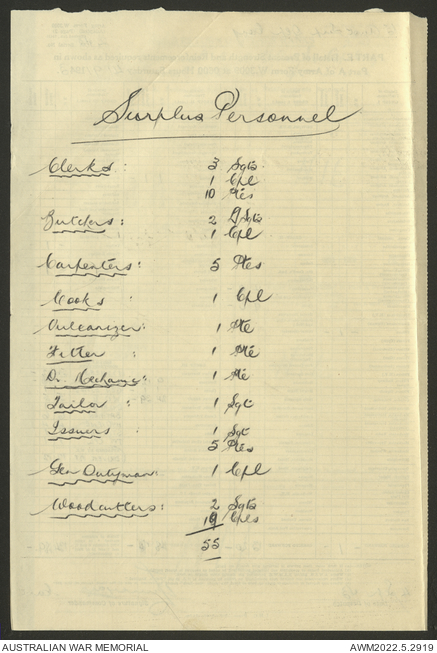 Surplus Personnel
Clerks : 3 Sgts
1 Cpl
10 Ptes
Butchers : 2 Sgts
1 Cpl
Carpenters : 5 Ptes
Cooks : 1 Cpl
Vulcanizer : 1 Pte
Fitter : 1 Pte
D. Mechanic : 1 Pte
Tailor : 1 Sgt
Issuers : 1 Sgt
5 Ptes
Gen Dutyman : 1 Cpl
Woodcutters : 2 Sgts
19 Cpls
55
AUSTRALIAN WAR MEMORIAL
AWM2022.5.2919